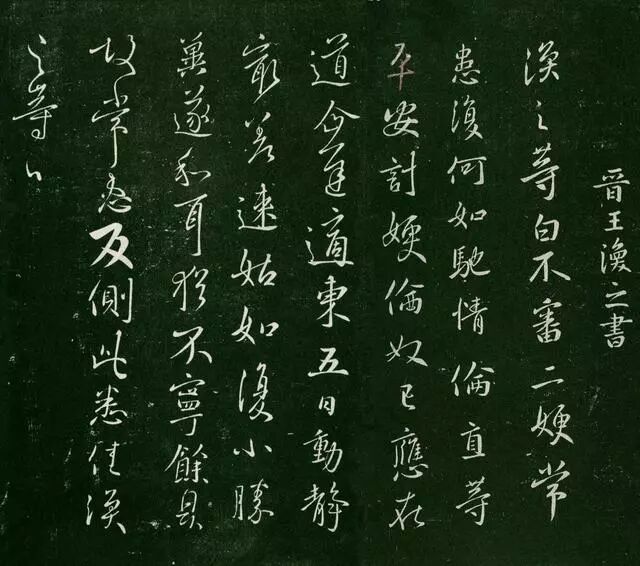 晉王渙之書
渙之等白不審二嫂常
患復何如馳情倫直等
平安計嫂倫奴已應在
道企遲適東五日動靜
最差速姑如復小勝
冀遂和耳猶不寧餘具
故常患反側此悉佳渙
之等白